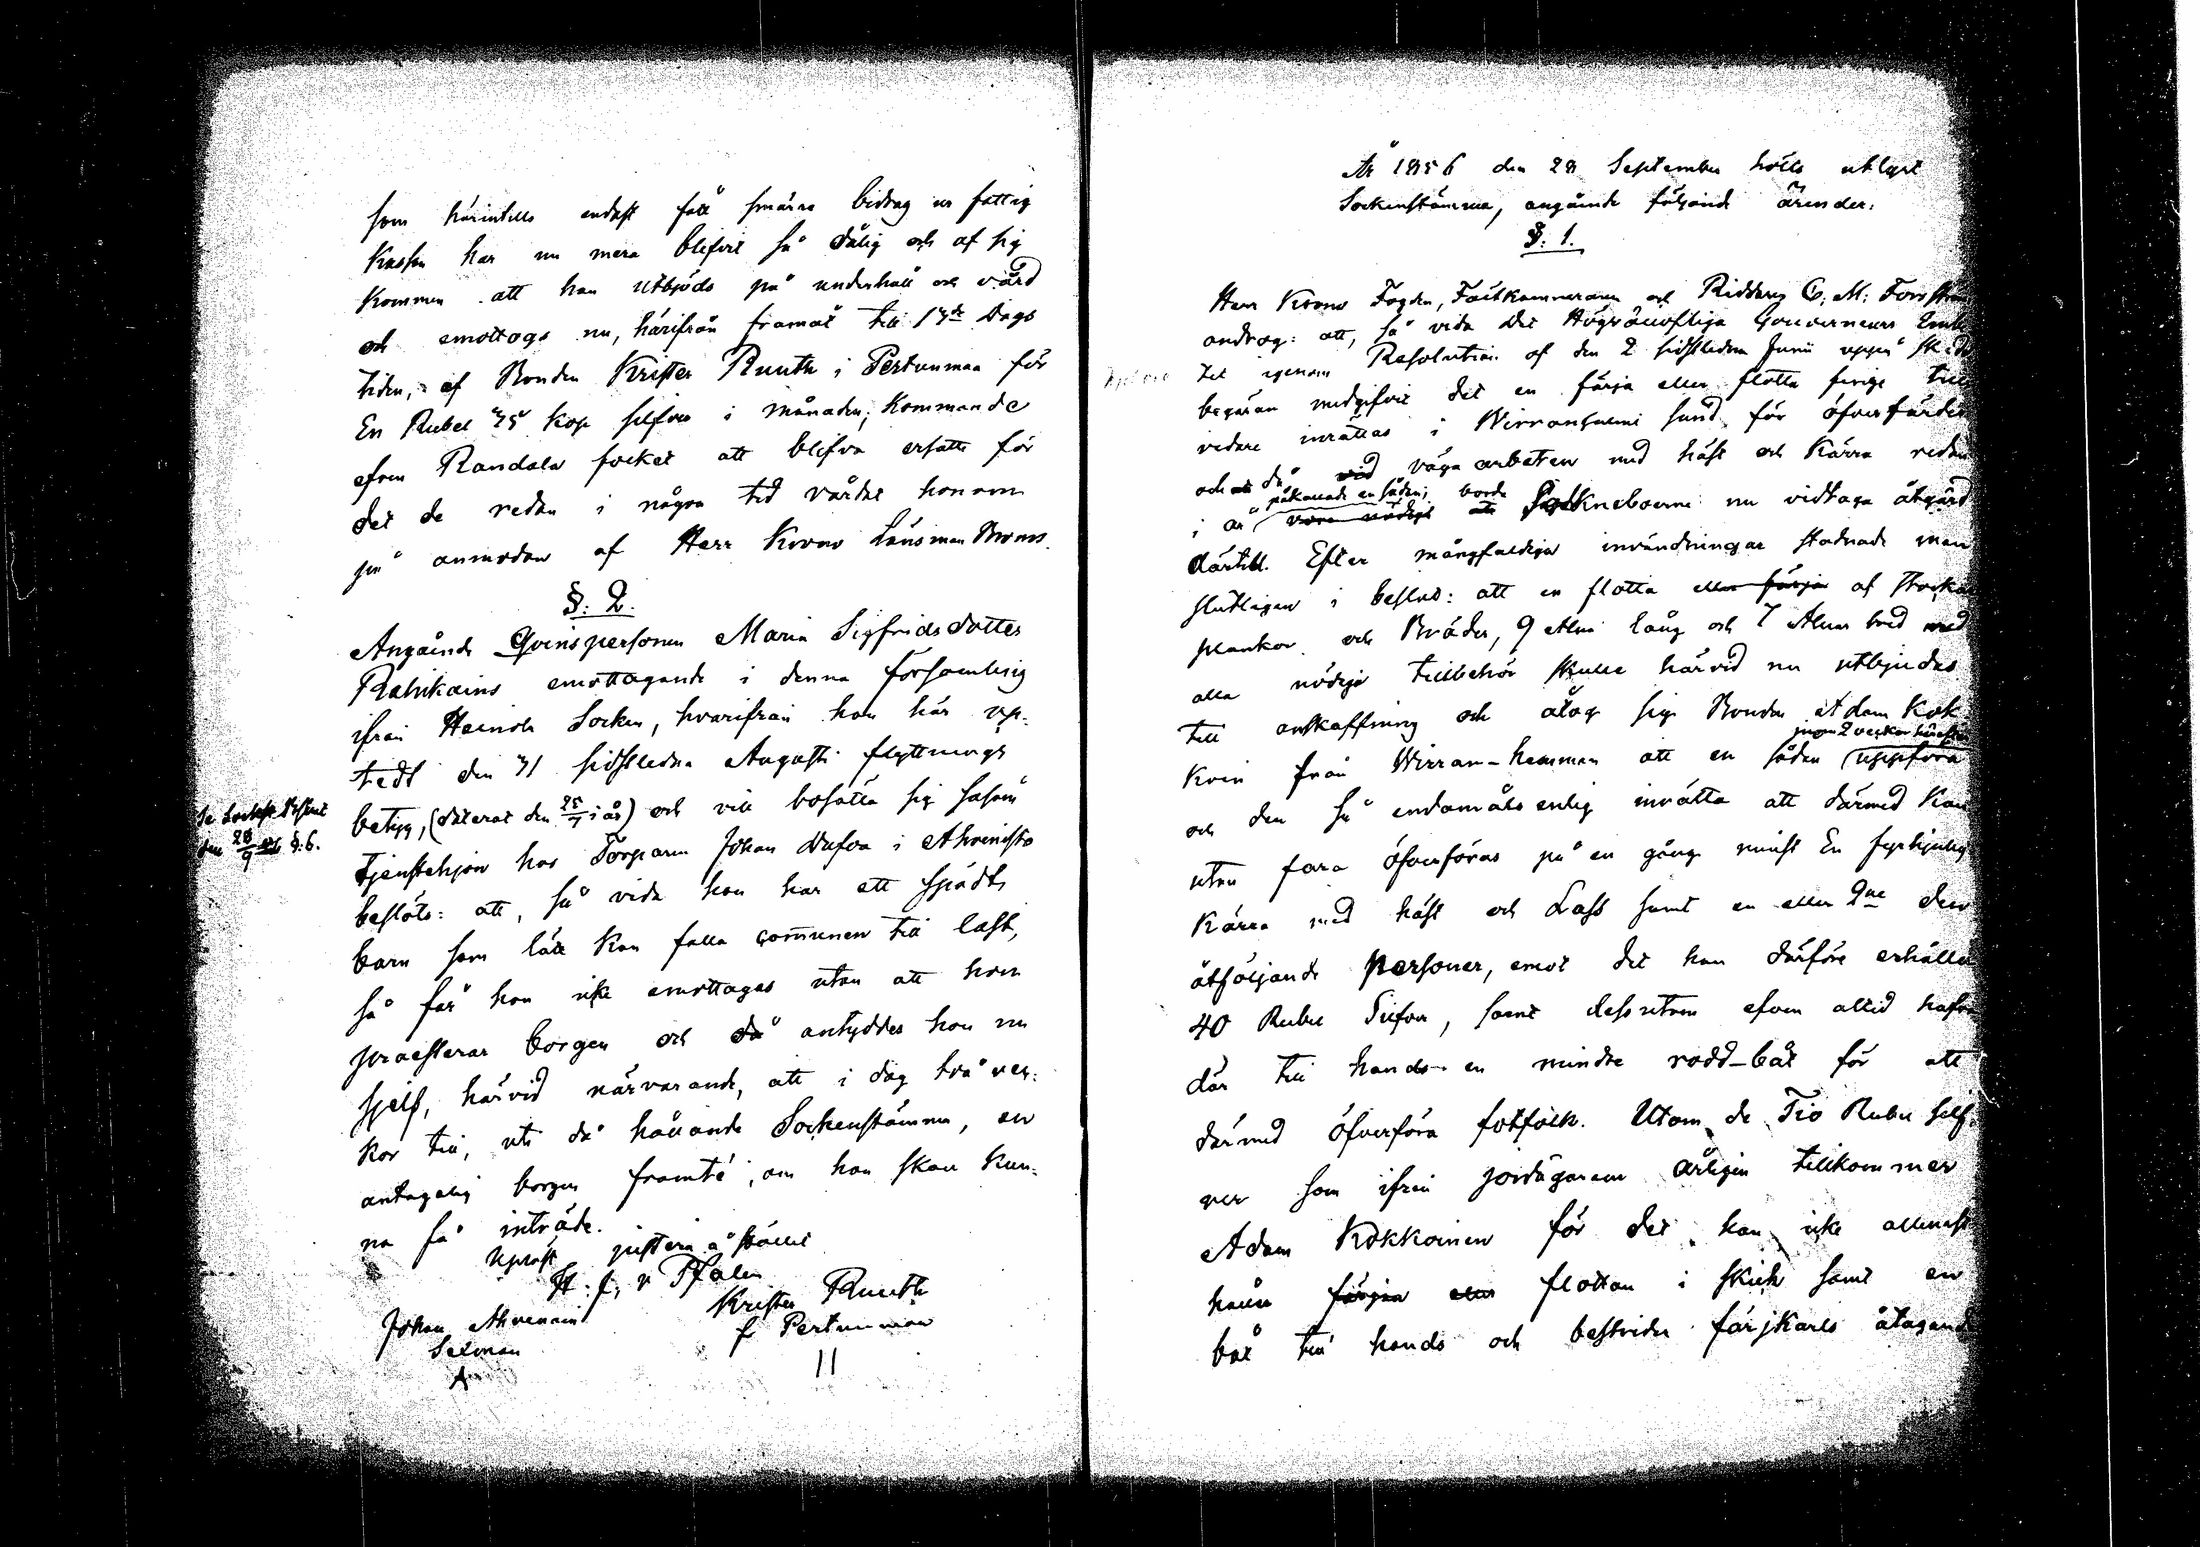 som härintills endast fått smärre bidrag ur fattig
Kassan har nu mera blifvit så dålig och af sig
kommen att han utbjöds på underhåll och vård
och emottogs nu, härifrån framåt till 13de Dags
tiden, af Bonden Krister Ruuth i Pertunmaa för
En Rubel 75 kop silfver i månaden; kommande
efven Randala focket att blifva ersatte för
det de redan i någon tid vårdat honom
på anmodan af Herr Krono Länsman Broms.
§: 2.
Angående Qvinspersonen Maria Sigfridsdotter
Rahikains emottagande i denna församling
ifrån Heinola Socken, hvarifrån hon här up-
tedt den 31 sidstledne Augusti flyttnings
betyg, (daterat den 25/7 i år) och vill bosätta sig såsom
tjenstehjon hos Torparen Johan Hufva i Ahvenisto
beslöts: att, så vida hon har ett spädt
barn som lätt kan falla communen till last,
så får hon icke emottagas utan att hon
praesterar borgen och då antyddes hon nu
sjelf, härvid närvarande, att i dag två vec-
kor till, uti då hållande Sockenstämma, en
antagelig borgen framté, om hon skall kun-
na få inträde.
Upläst justera å stället
H. J. v Pfaler
Johan Ahvenain Krister Ruuth
Salmon f Pertunmaa
den 28/9 §. 6.
År 1856 den 28 September hölls utlyst
Sockenstämma, angående följande ärender:
§: 1.
Herr Krono Fogden, Fältkamreraren och Riddaren C. M. Forsström
androg: att, så vida det Högvälloflige Gouverneurs Embe
tet igenom Resolution af den 2 sidstledne Junii uppå skedd
begäran medgifvit det en färja eller flotta finge till
vidare inrättas i Wirransalmi sund för öfverfärder
och då vid väga arbeten med häst och kärra redan
i år påkallade en sådan; borde Sockneboerne nu vidtaga åtgärd
därtill. Efter mångfaldiga invändningar stadnade man
slutligen i beslut: att en flotta eller färja af stockar
plankor och Bräder, 9 Alnar lång och 7 Alnar bred med
alla nödiga tillbehör skulle härvid nu utbjudas
till anskaffning och åtog sig Bonden Adam Kok
koin från Wirran-hemman att en sådan inom 2 veckor härefter uppföra
och den så endamålsenlig inrätta att därmed kan
utan fara öfverföras på en gång minst En fyrhjulig
kärra med häst och Lass samt en eller 2ne den
åtföljande personer, emot det han därföre erhåller
40 Rubel Silfver, samt dessutom efven alltid hafva
där till hands en mindre rodd-båt för att
därmed öfverföra fotfolk. Utom de Tio Rubel silf-
ver som ifrån jordägaren årligen tillkommer
Adam Kokkoinen för det han icke allenast
håller färjan eller flottan i skick samt en
båt till hands och bestrider färjkarls åtagande